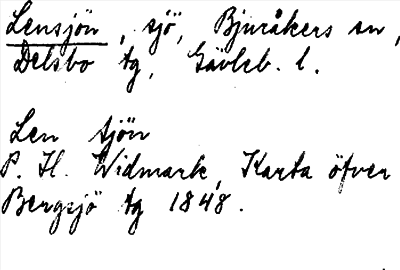 Lensjön, sjö, Bjuråkers sn,
Delsbo tg, Gävleb. l.
Len tjön
P. H. Widmark, Karta öfver
Bergsjö tg 1848.